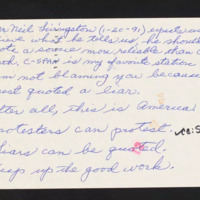 r Neil Livingston (1-20-91)
what he tells us, he should
ote a source more reliable than
C-SPAN is my favorite station
m not blaming you because
just quoted a liar.
fter all, this is America
rotesters can protest
liars can be quoted.
eep up the good work.